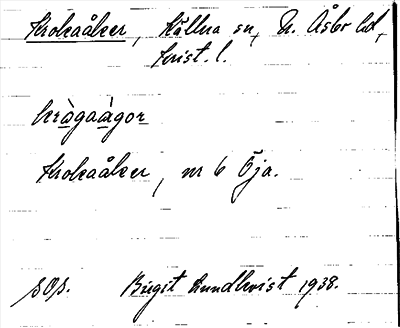 Krokaåker, Källna sn, N. Åsbo hd,
Krist. l.
kràgaàgor
Krokaåker, nr 6 Öja.
sOp. Birgit Lundkvist 1938.